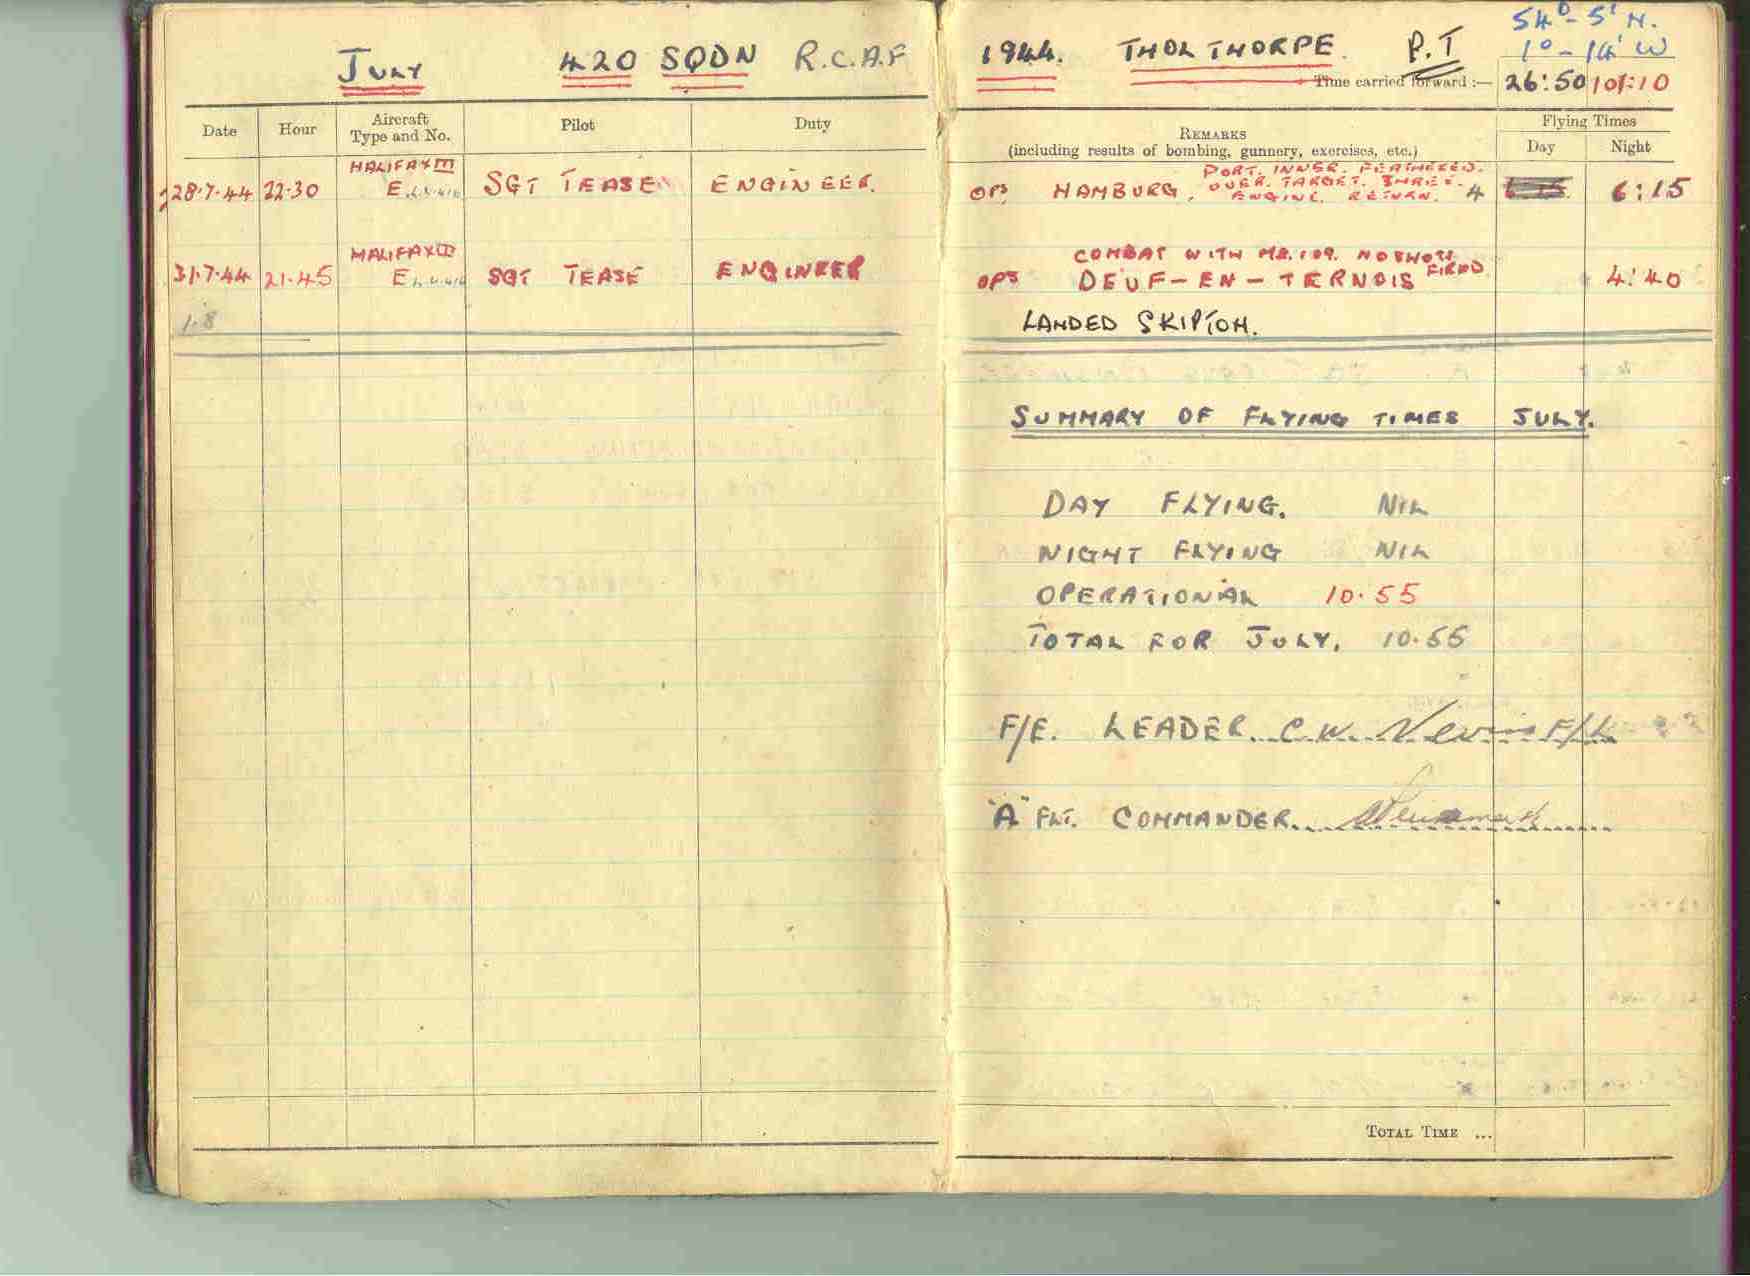 JULY 420 SQDN R.C.A.F
Date Hour Aircraft Type and No. Pilot Duty
HALIFAX III
28·7·44 22·30 E SGT TEASE ENGINEER.
HALIFAX III
31·7·44 21·45 E SGT TEASE ENGINEER
1·8
54° - 5' N.
1944. THOLTHORPE. P.T 1° - 14' W
Time carried forward :— 26:50 101:10
REMARKS
(including results of bombing, gunnery, exercises, etc.)
Flying Times
Day Night
PORT. INNER. FEATHERED.
OPS HAMBURG. OVER. TARGET. THREE. 4 6:15 6:15
ENGINE. RETURN.
COMBAT WITH ME.109. NO SHOTS
OPS DEUF-EN-TERNOIS FIRED 4:40
LANDED SKIPTON.
SUMMARY OF FLYING TIMES JULY.
DAY FLYING. NIL
NIGHT FLYING NIL
OPERATIONAL 10·55
TOTAL FOR JULY. 10·55
F/E. LEADER. C.W. F/L
"A" FLT. COMMANDER
TOTAL TIME ...